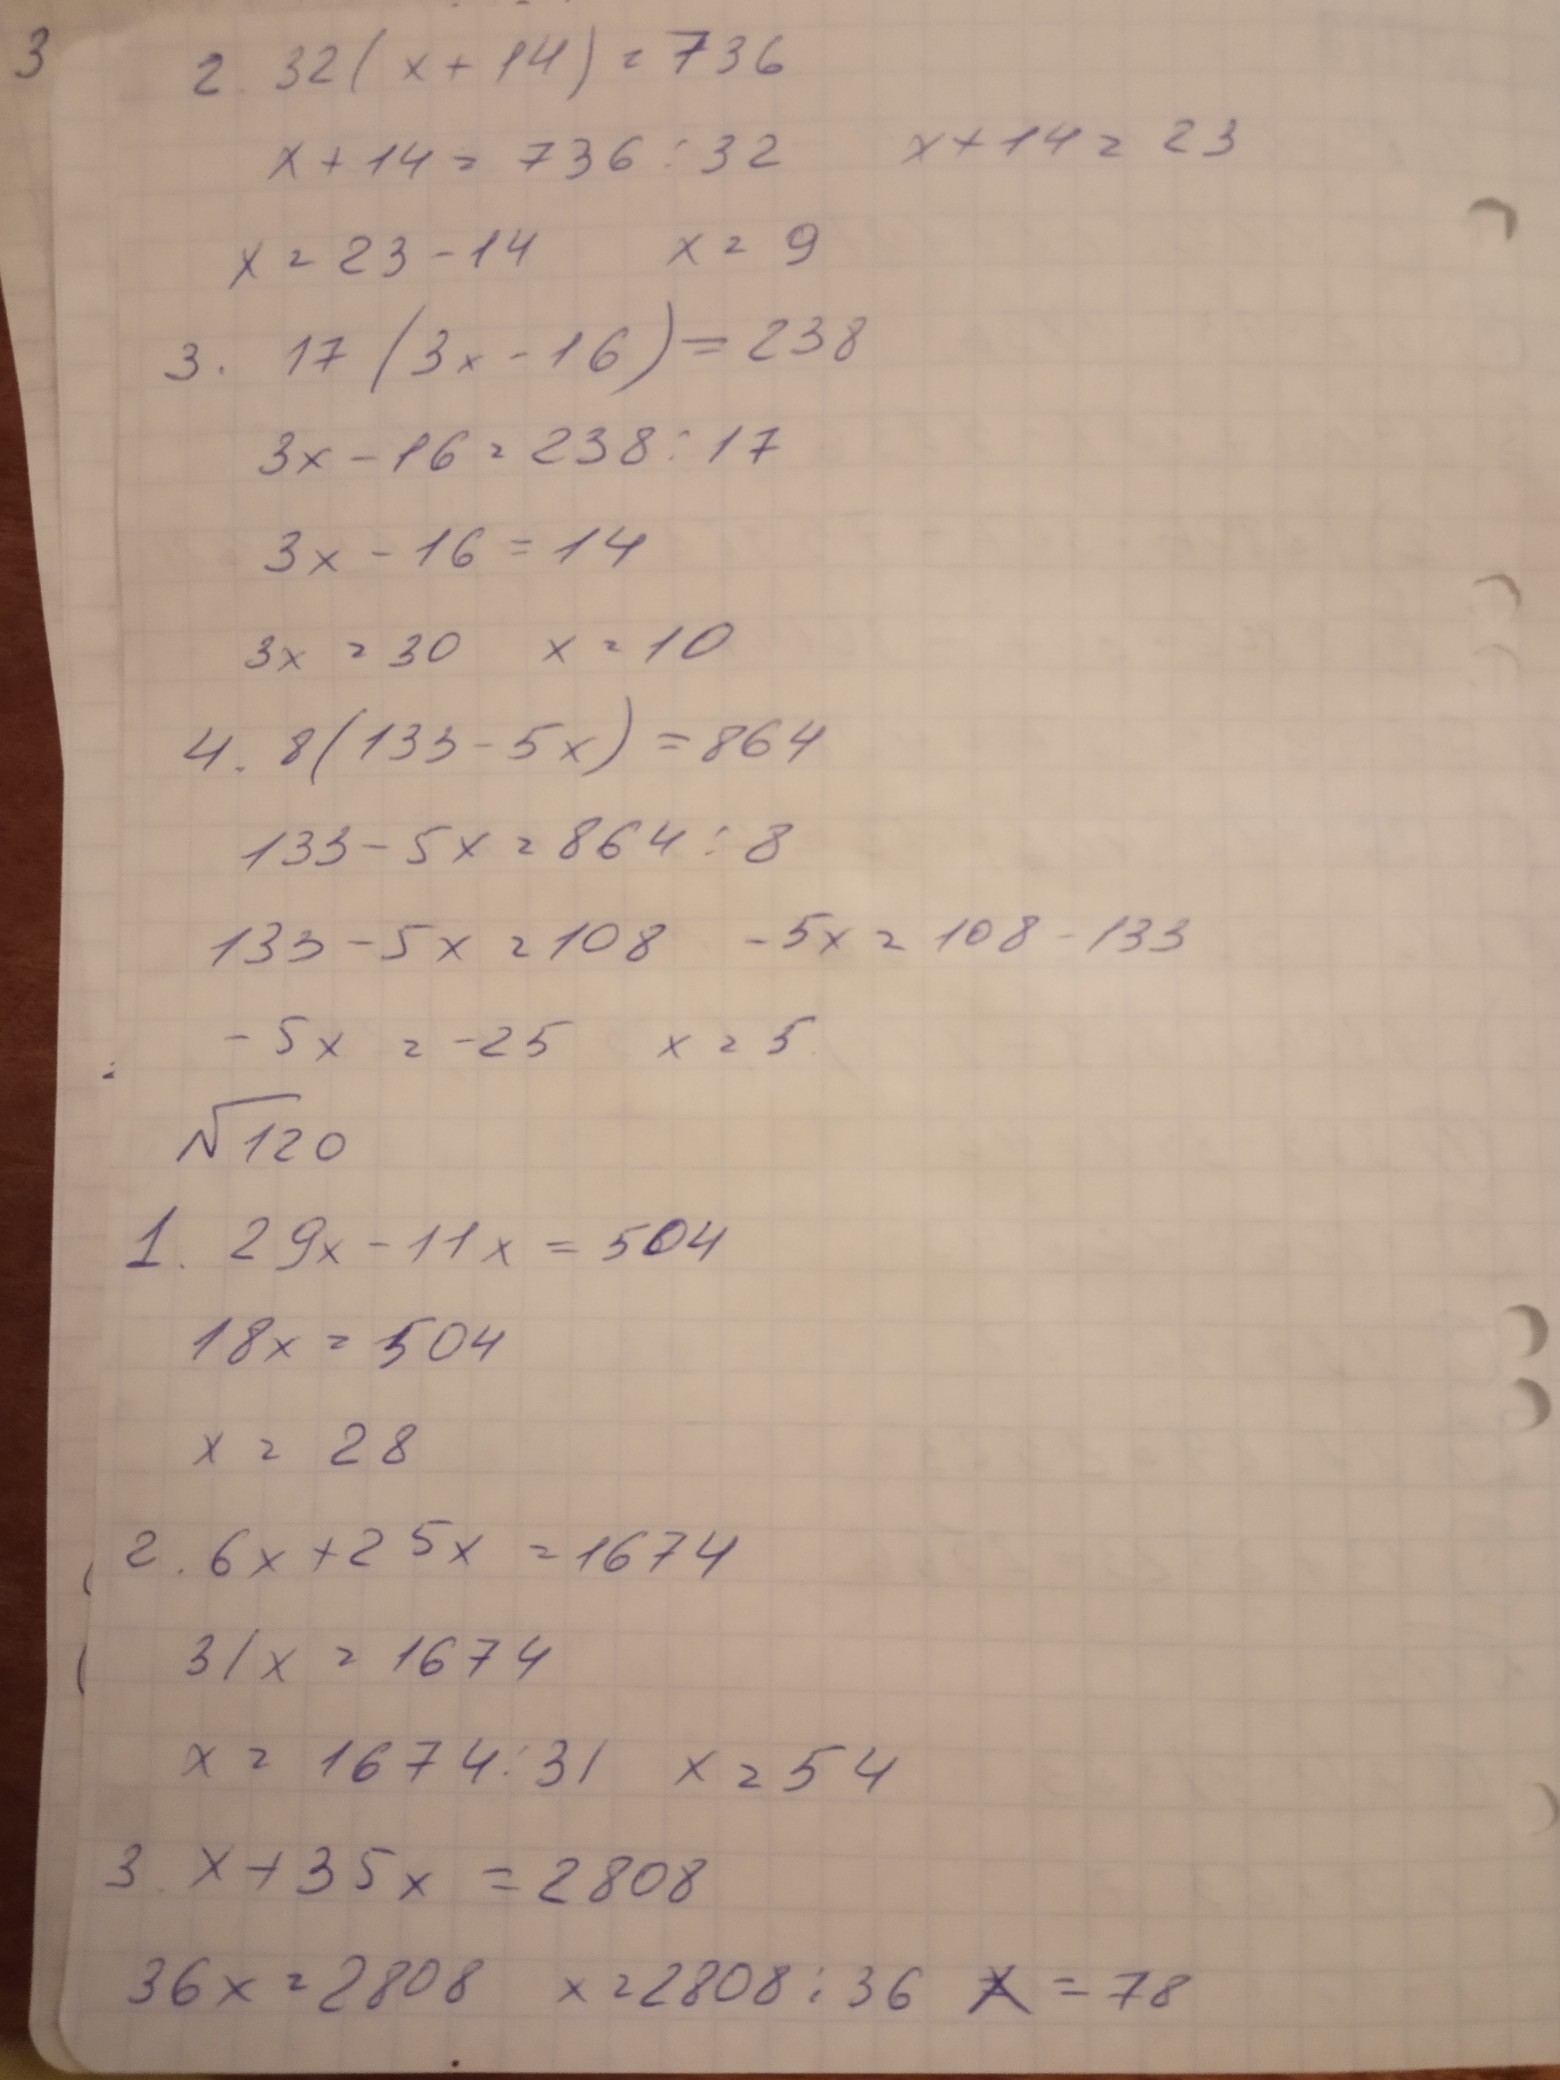 3
2. 32(x+14)=736
x+14=736:32 x+14=23
x=23-14 x=9
3. 17(3x-16)=238
3x-16=238:17
3x-16=14
3x=30 x=10
4. 8(133-5x)=864
133-5x=864:8
133-5x=108 -5x=108-133
-5x=-25 x=5
№120
1. 29x-11x=504
18x=504
x=28
2. 6x+25x=1674
31x=1674
x=1674:31 x=54
3. x+35x=2808
36x=2808 x=2808:36 x=78